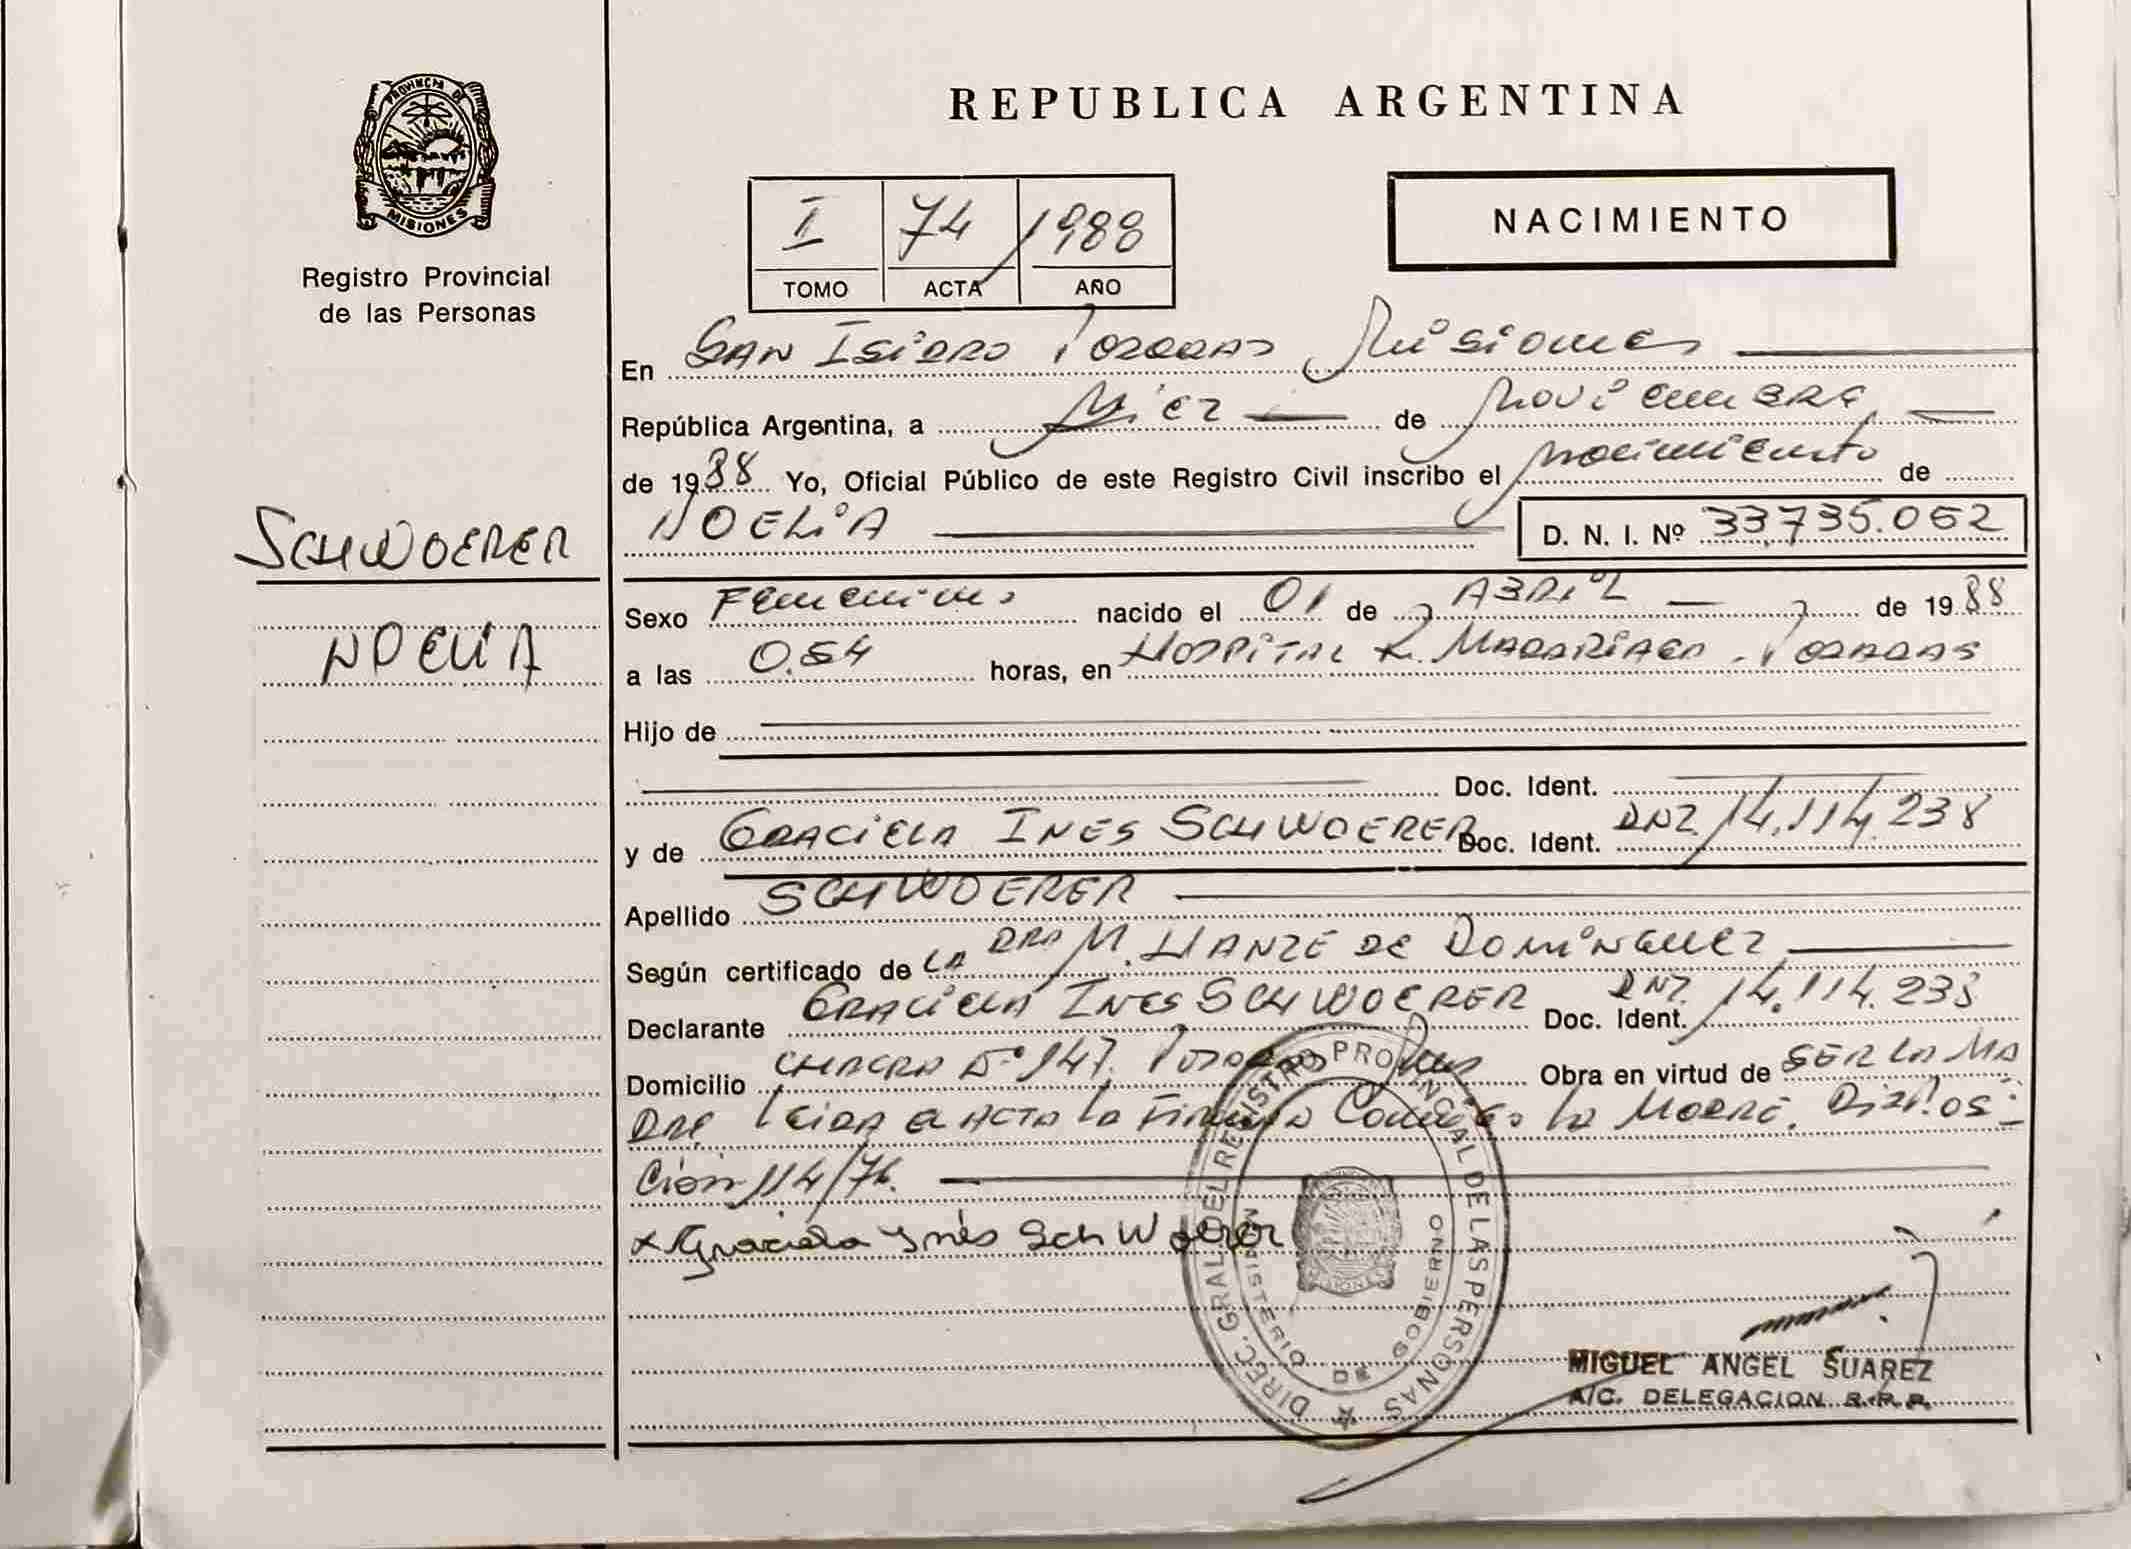 PROVINCIA DE
MISIONES
Registro Provincial
de las Personas
SCHWOERER
NOELIA
REPUBLICA ARGENTINA
I 74 / 1988
TOMO ACTA AÑO
NACIMIENTO
En SAN ISIDRO POSADAS Misiones
República Argentina, a Diez de Noviembre
de 1988 Yo, Oficial Público de este Registro Civil inscribo el nacimiento de
NOELIA D. N. I. Nº 33,735.062
Sexo Femenino nacido el 01 de ABRIL de 1988
a las 0.54 horas, en HOSPITAL R. MADARIAGA. POSADAS
Hijo de
Doc. Ident.
y de GRACIELA INES SCHWOERER Doc. Ident. DNI. 14.114.238
Apellido SCHWOERER
Según certificado de LA DRA M. HANZE DE DOMINGUEZ
Declarante GRACIELA INES SCHWOERER Doc. Ident. DNI. 14.114.238
Domicilio CHACRA Nº 147. Posadas Mnes Obra en virtud de SER LA MA
DRE Leida el ACTA la Firma Conmigo la Madre. Dispos-
ición 114/76.
x Graciela Inés SchWoerer
DIREC. GRAL DEL REGISTRO PROVINCIAL DE LAS PERSONAS
MINISTERIO DE GOBIERNO
MIGUEL ANGEL SUAREZ
A/C. DELEGACION R.P.P.